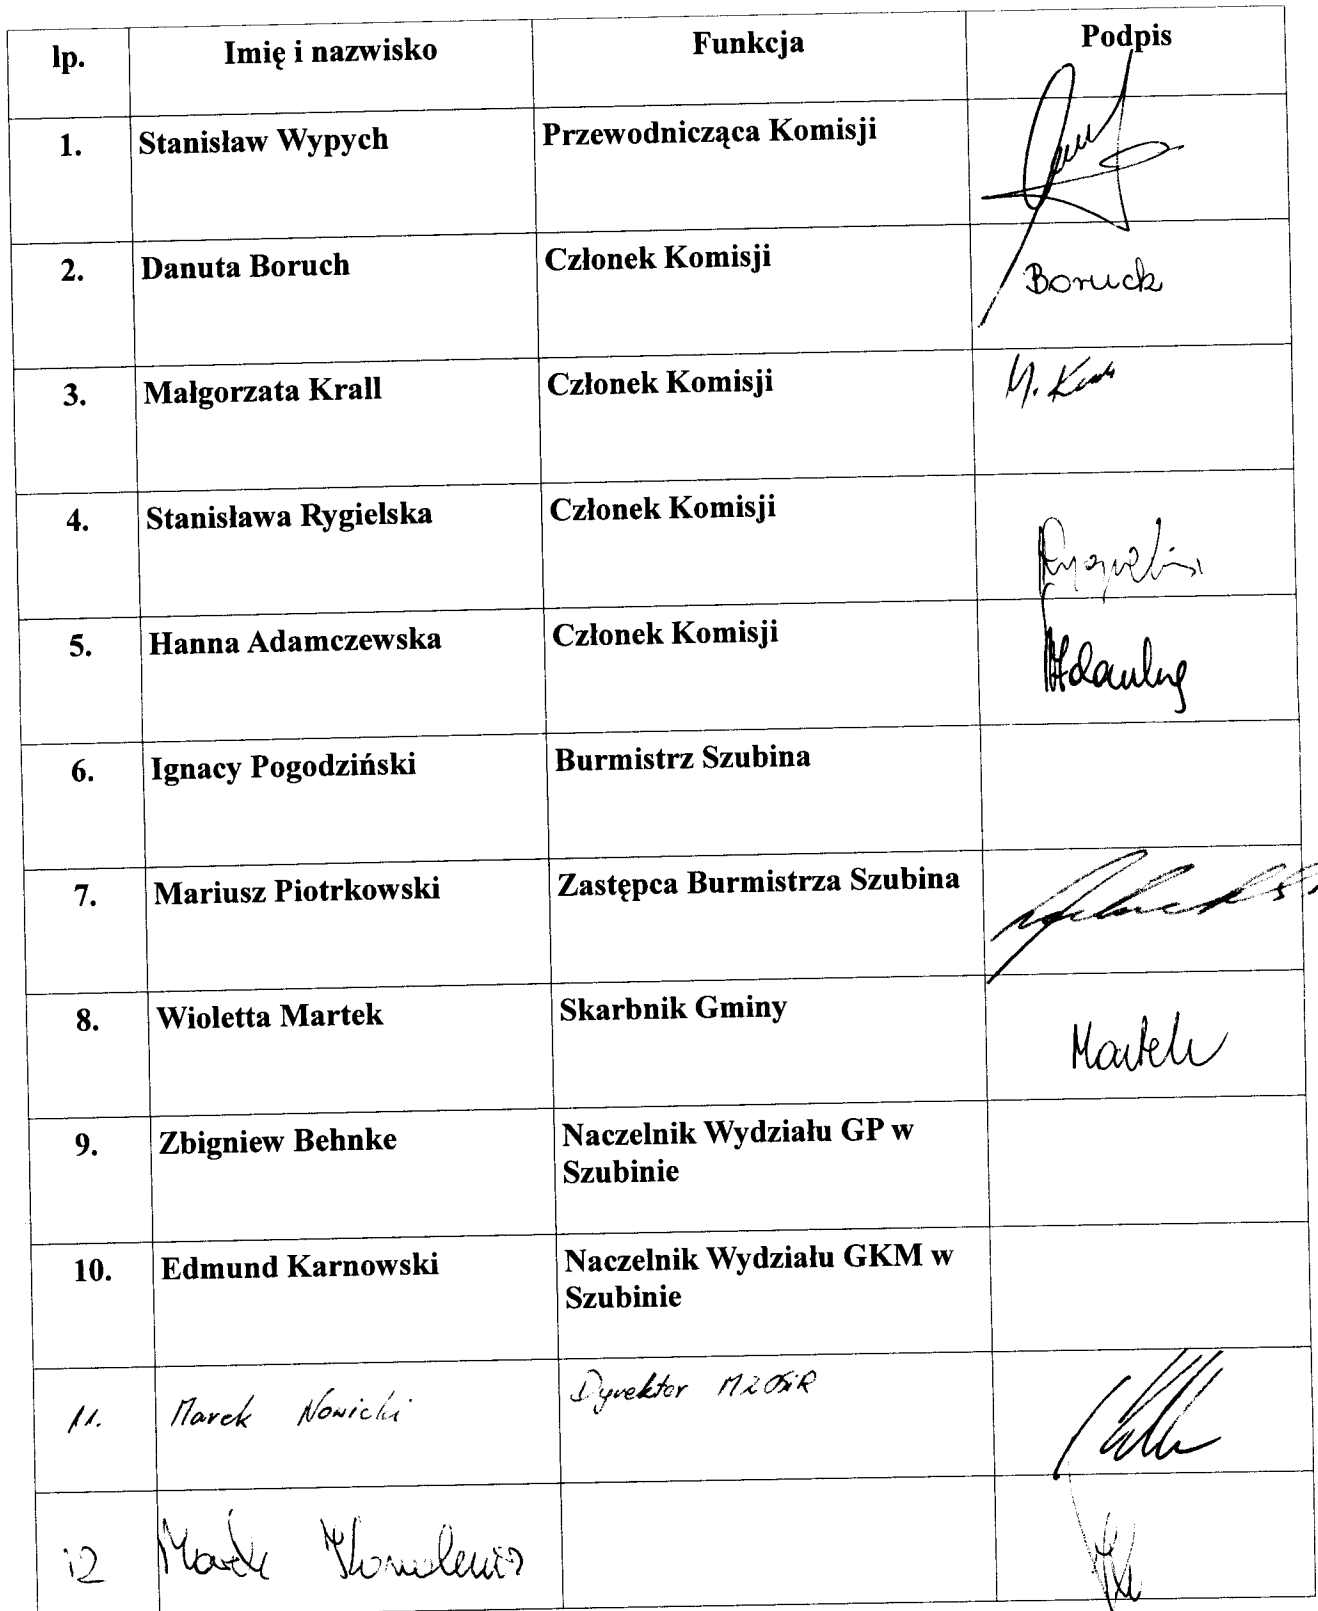 lp. Imię i nazwisko Funkcja Podpis
1. Stanisław Wypych Przewodnicząca Komisji
2. Danuta Boruch Członek Komisji Boruch
3. Małgorzata Krall Członek Komisji M.
4. Stanisława Rygielska Członek Komisji
5. Hanna Adamczewska Członek Komisji
6. Ignacy Pogodziński Burmistrz Szubina
7. Mariusz Piotrkowski Zastępca Burmistrza Szubina
8. Wioletta Martek Skarbnik Gminy Martek
9. Zbigniew Behnke Naczelnik Wydziału GP w
Szubinie
10. Edmund Karnowski Naczelnik Wydziału GKM w
Szubinie
11. Marek Nowicki Dyrektor
12 Marek